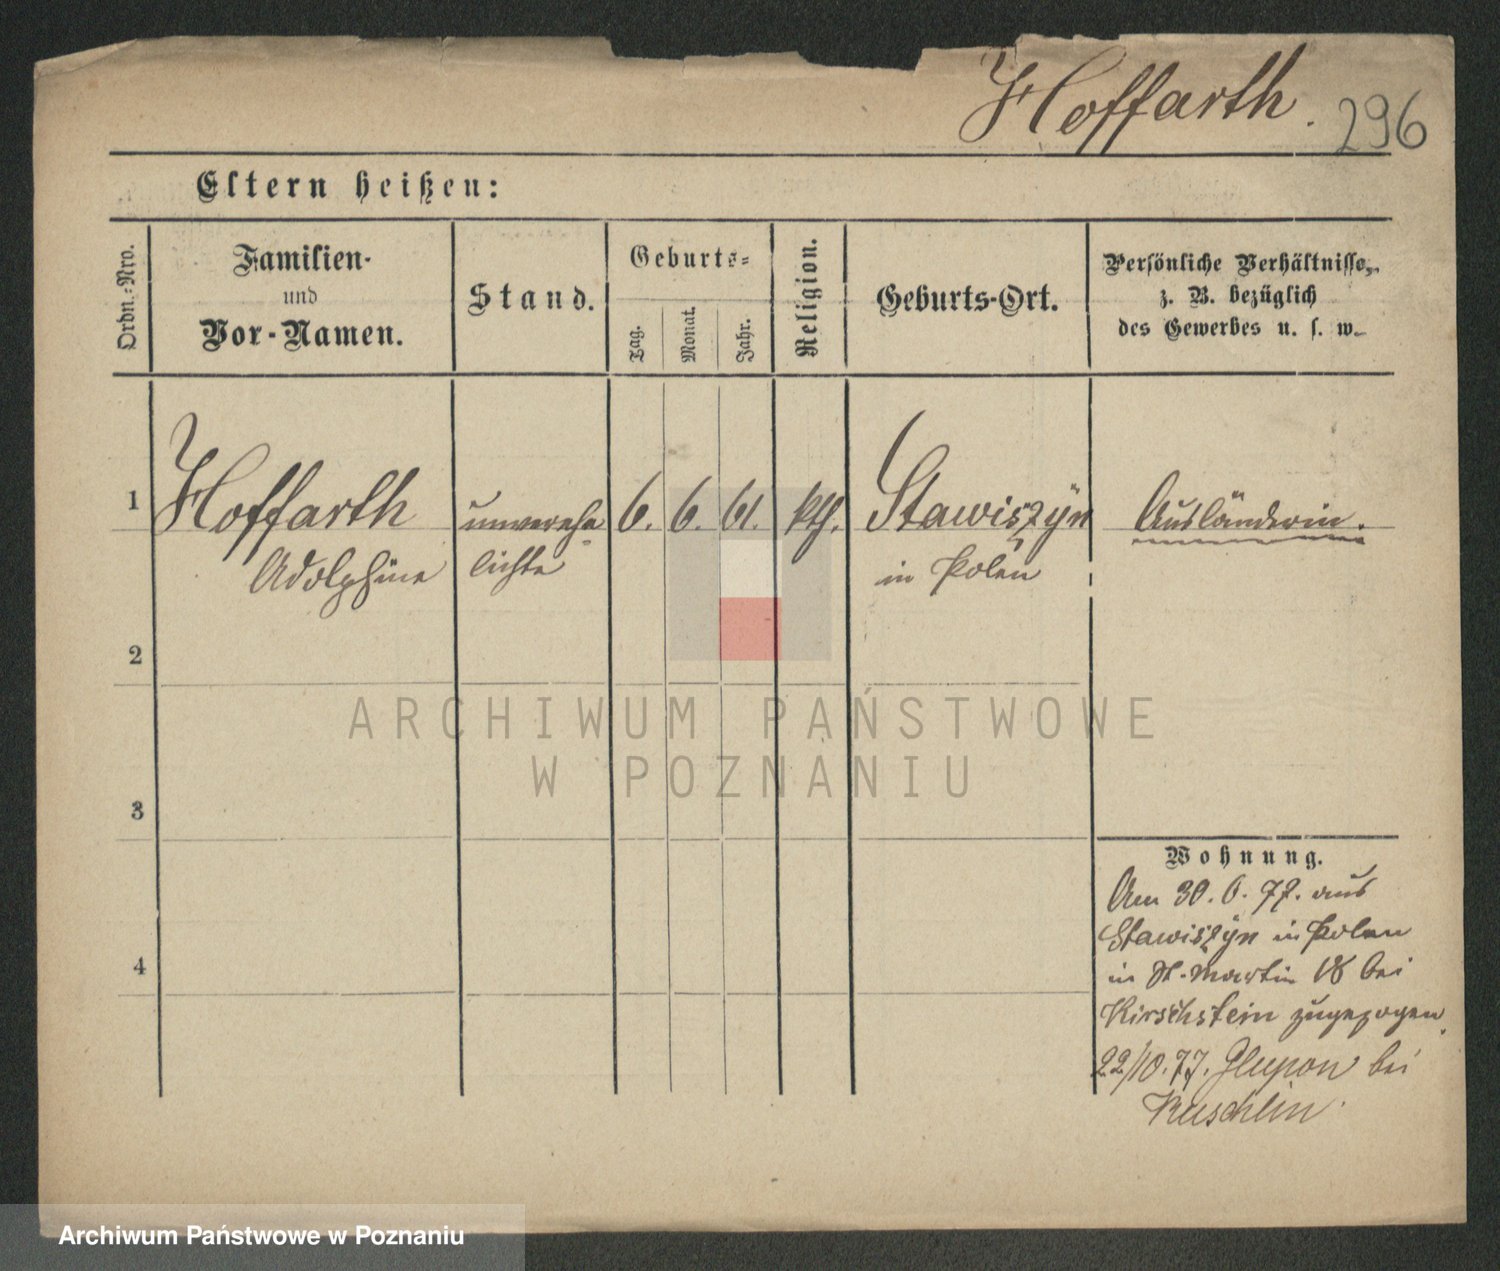 Hoffarth.
296
Eltern heißen:
Ordn.-Nro.
Familien-
und
Vor-Namen.
Stand.
Geburts-
Tag.
Monat.
Jahr.
Religion.
Geburts-Ort.
Persönliche Verhältnisse,
z. B. bezüglich
des Gewerbes u. s. w.
1 Hoffarth unvereh- 6. 6. 61. kth. Stawiszyn Ausländerin.
Adolphine lichte in Polen
2
3
4
Wohnung.
Am 30. 6. 77. aus
Stawiszyn in Polen
in St. Martin 18 bei
Kirschstein zugezogen.
22/10. 77. Glupon bei
Kuschlin.
ARCHIWUM PAŃSTWOWE
W POZNANIU
Archiwum Państwowe w Poznaniu